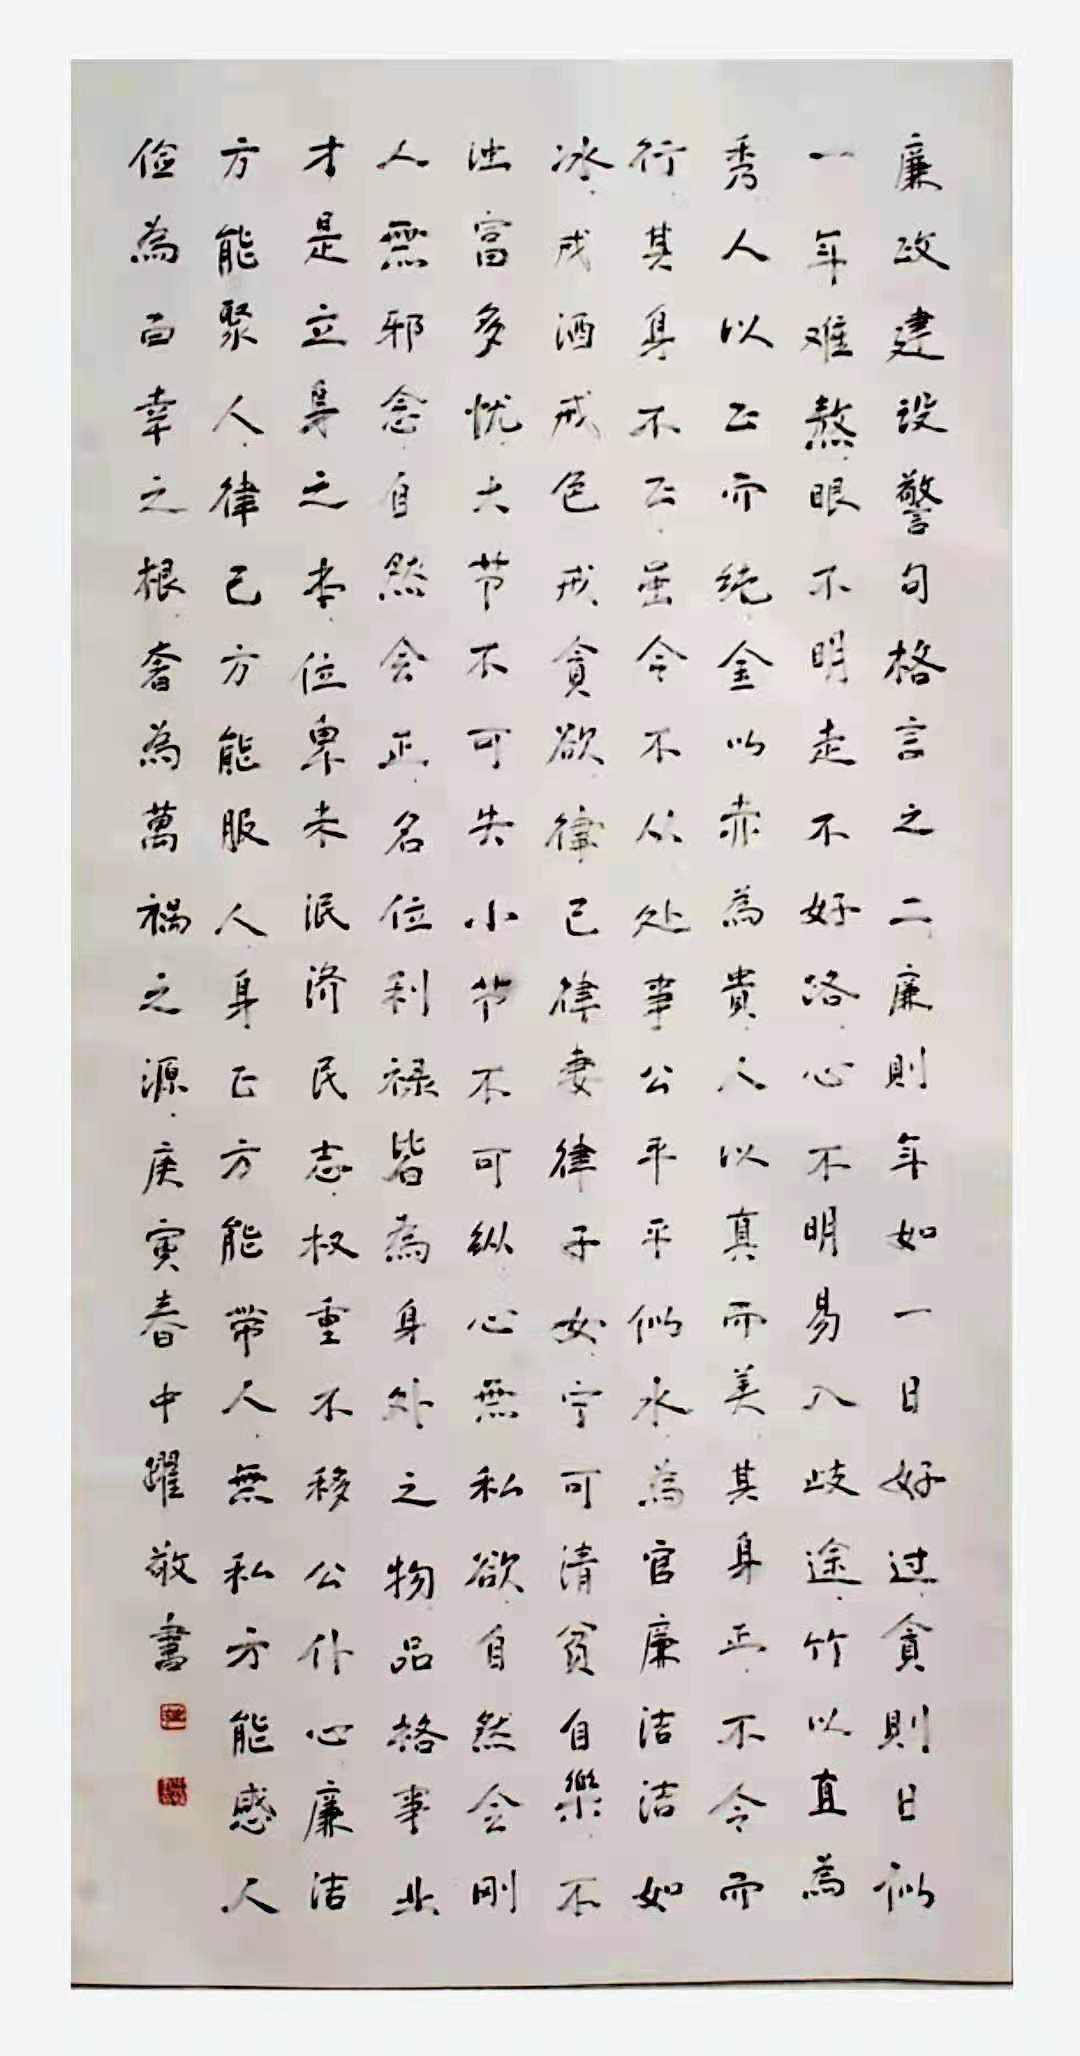 廉政建设警句格言之二廉則年如一日好过.貪則日似
一年难熬.眼不明走不好路.心不明易入歧途.竹以直為
秀人以正而纯.金以赤為貴人以真而美.其身正.不令而
行.其身不正.虽令不从处事公平平似水.為官廉洁洁如
冰.戒酒戒色戒貪欲.律己律妻律子女.宁可清贫自樂.不
浊富多忧.大节不可失小节不可纵心無私欲.自然会刚
人無邪念.自然会正.名位利禄皆為身外之物.品格事业
才是立身之本.位卑未泯济民志.权重不移公仆心廉洁
方能聚人.律己方能服人.身正方能带人.無私方能感人
俭為百幸之根.奢為萬禍之源.庚寅春中躍敬書